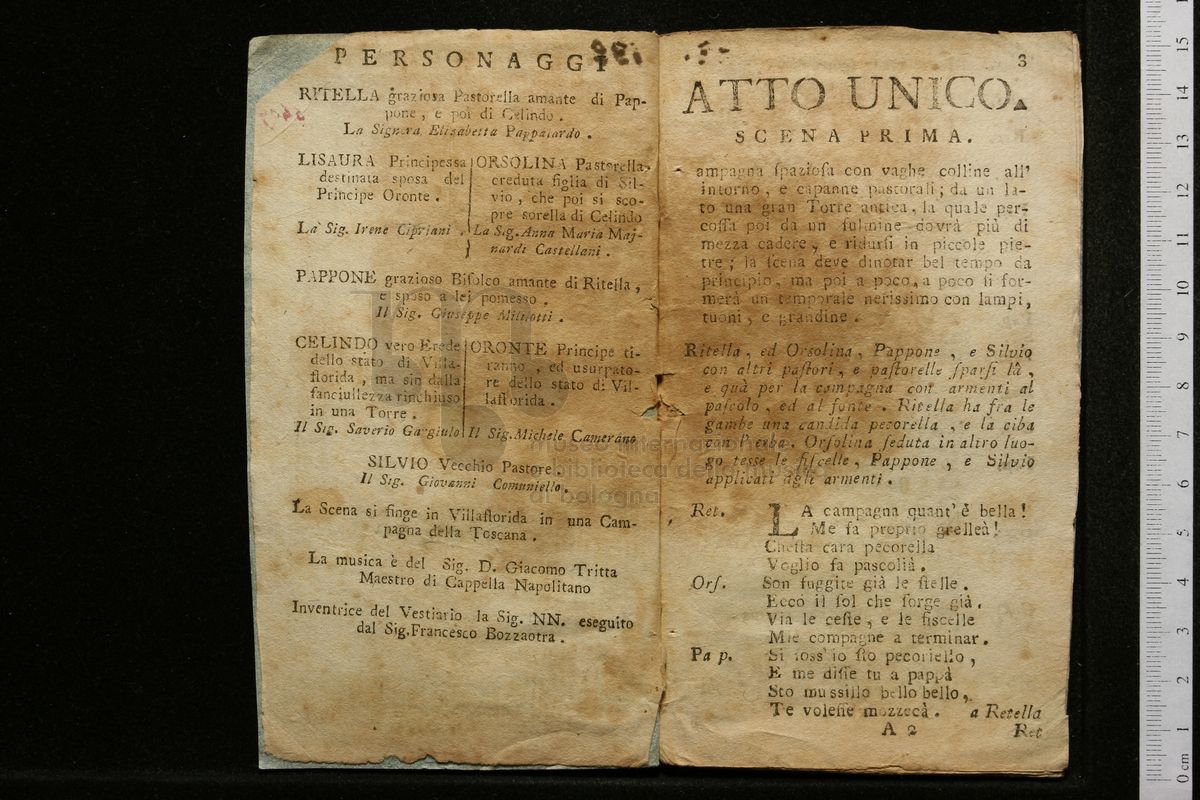 PERSONAGGI
RITELLA graziosa Pastorella amante di Pap-
pone , e poi di Celindo .
La Signora Elisabetta Pappalardo .
LISAURA Principessa
destinata sposa del
Principe Oronte .
La Sig. Irene Cipriani .
ORSOLINA Pastorella,
creduta figlia di Sil-
vio , che poi si sco-
pre sorella di Celindo
La Sig. Anna Maria Maj-
nardi Castellani .
PAPPONE grazioso Bifolco amante di Ritella ,
e sposo a lei pomesso .
Il Sig. Giuseppe Milllotti .
CELINDO vero Erede
dello stato di Villa-
florida , ma sin dalla
fanciullezza rinchiuso
in una Torre .
Il Sig. Saverio Gargiulo
ORONTE Principe ti-
ranno , ed usurpato-
re dello stato di Vil-
laflorida .
Il Sig. Michele Camerano
SILVIO Vecchio Pastore .
Il Sig. Giovanni Comuniello .
La Scena si finge in Villaflorida in una Cam-
pagna della Toscana .
La musica è del Sig. D. Giacomo Tritta
Maestro di Cappella Napolitano
Inventrice del Vestiario la Sig. NN. eseguito
dal Sig. Francesco Bozzaotra .
3
ATTO UNICO.
SCENA PRIMA.
ampagna ſpazioſa con vaghe colline all'
intorno , e capanne paſtorali ; da un la-
to una gran Torre antica, la quale per-
coſſa poi da un fulmine dovrà più di
mezza cadere , e ridurſi in piccole pie-
tre ; la ſcena deve dinotar bel tempo da
principio, ma poi a poco, a poco ſi for-
merà un temporale neriſſimo con lampi,
tuoni , e grandine .
Ritella , ed Orſolina , Pappone , e Silvio
con altri paſtori , e paſtorelle ſparſi là ,
e quà per la campagna con armenti al
paſcolo , ed al fonte . Ritella ha fra le
gambe una candida pecorella , e la ciba
con l'erba. Orſolina ſeduta in altro luo-
go teſſe le fiſcelle, Pappone , e Silvio
applicati agli armenti .
Ret. LA campagna quant'è bella !
Me fa proprio grelleà!
Cheſta cara pecorella
Voglio fa paſcolià.
Orſ. Son fuggite già le ſtelle,
Ecco il ſol che ſorge già.
Via le ceſte , e le fiscelle
Mie compagne a terminar.
Pap. Si foss'io ſto pecoriello ,
E me diſſe tu a pappà
Sto mussillo bello bello,
Te voleſſe mozzecà. a Retella
A 2
Ret
museo internazionale
e biblioteca della musica
di bologna
0 cm 1 2 3 4 5 6 7 8 9 10 11 12 13 14 15